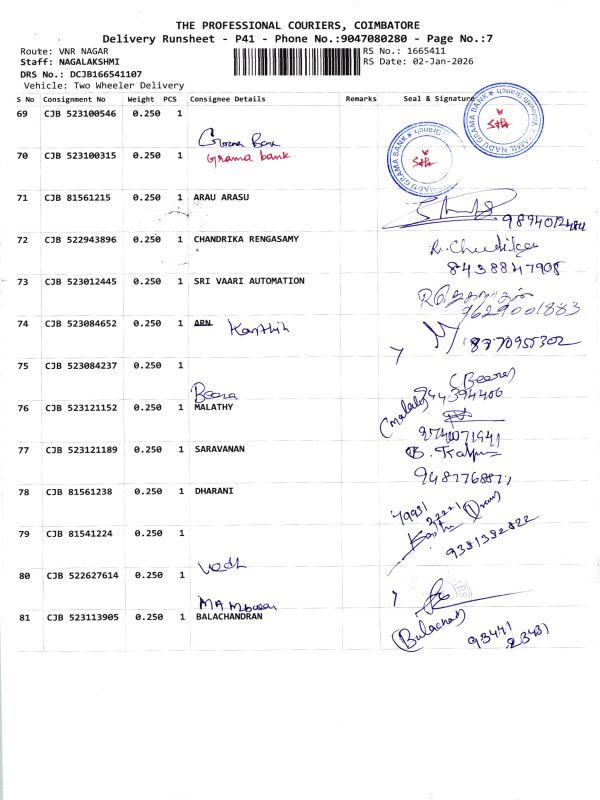 THE PROFESSIONAL COURIERS, COIMBATORE
Delivery Runsheet - P41 - Phone No.:9047080280 - Page No.:7
Route: VNR NAGAR
RS No.: 1665411
Staff: NAGALAKSHMI
RS Date: 02-Jan-2026
DRS No.: DCJB166541107
Vehicle: Two Wheeler Delivery
S No Consignment No Weight PCS Consignee Details Remarks Seal & Signature
69 CJB 523100546 0.250 1
Grama Bank
70 CJB 523100315 0.250 1 Grama bank
71 CJB 81561215 0.250 1 ARAU ARASU
9894012484
72 CJB 522943896 0.250 1 CHANDRIKA RENGASAMY R. Chandrika
8438847908
73 CJB 523012445 0.250 1 SRI VAARI AUTOMATION
9629001883
74 CJB 523084652 0.250 1 ARN Karthik
8870955302
75 CJB 523084237 0.250 1
Beena (Beena)
76 CJB 523121152 0.250 1 MALATHY (malathy)
77 CJB 523121189 0.250 1 SARAVANAN
78 CJB 81561238 0.250 1 DHARANI
79 CJB 81541224 0.250 1
9381382822
80 CJB 522627614 0.250 1
81 CJB 523113905 0.250 1 BALACHANDRAN (Balachan)
93441
23431